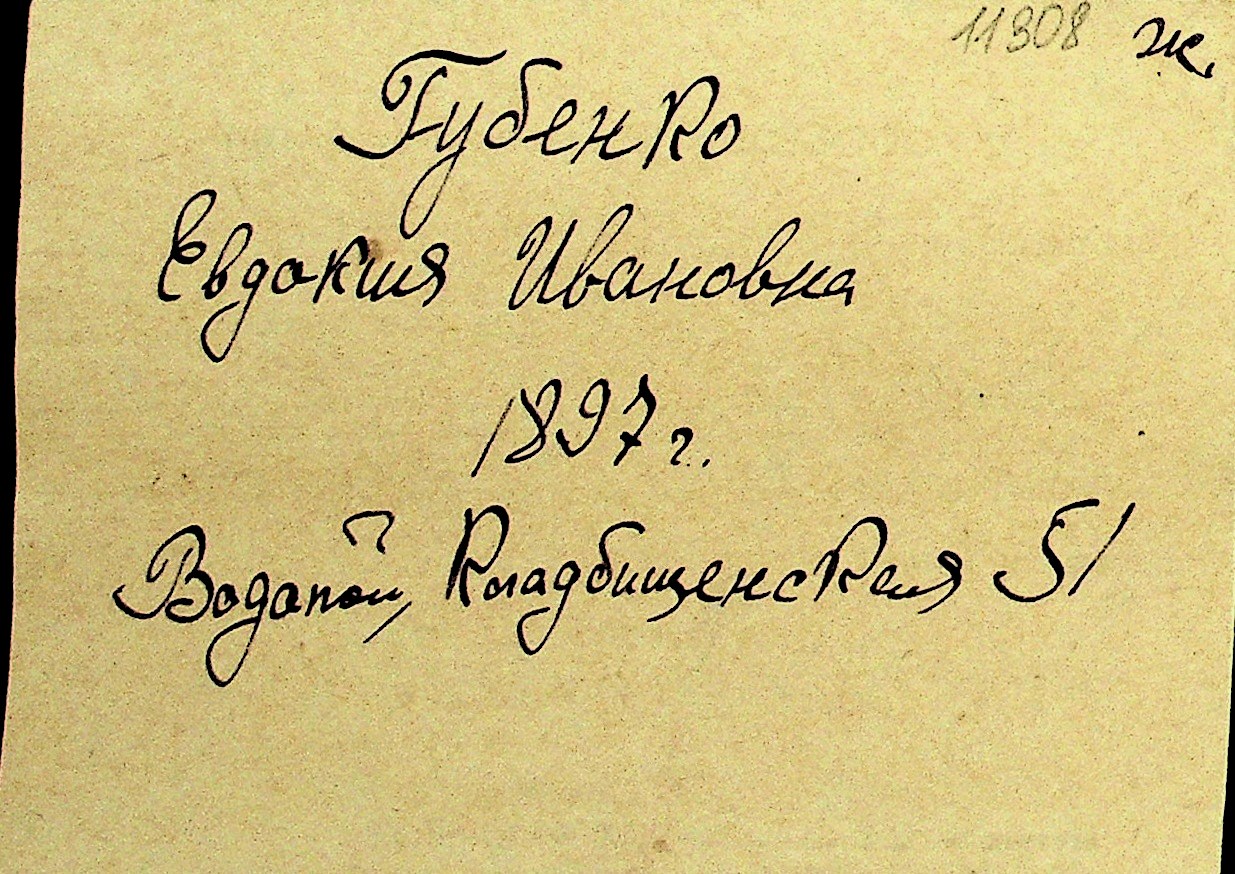 11308 ж.
Губенко
Евдокия Ивановна
1897 г.
Водопой, Кладбищенская 51